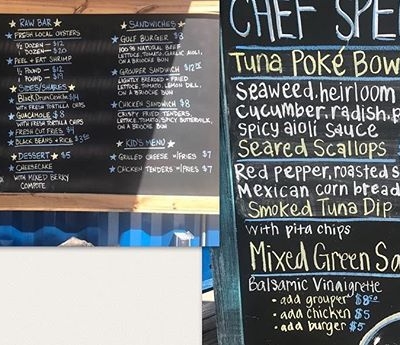 RAW BAR
FRESH LOCAL OYSTERS
½ DOZEN - $12
1 DOZEN - $20
PEEL + EAT SHRIMP
½ POUND - $12
1 POUND - $19
SIDES/SHARES
WITH FRESH TORTILLA CHIPS
GUACAMOLE $8
WITH FRESH TORTILLA CHIPS
FRESH CUT FRIES $4
BLACK BEANS + RICE $3.50
DESSERT $5
CHEESECAKE
WITH MIXED BERRY
COMPOTE
SANDWICHES
GULF BURGER $8
100% NATURAL BEEF
LETTUCE, TOMATO, GARLIC AIOLI,
ON A BRIOCHE BUN
GROUPER SANDWICH $12
LIGHTLY BREADED + FRIED
LETTUCE, TOMATO, LEMON DELL,
ON A BRIOCHE BUN
CHICKEN SANDWICH $8
CRISPY FRIED TENDERS,
LETTUCE, TOMATO, SPICY BUTTERMILK,
ON A BRIOCHE BUN
KID'S MENU
GRILLED CHEESE w/FRIES $7
CHICKEN TENDERS w/FRIES $7
CHEF SPE
Tuna Poké Bow
Seaweed, heirloom
cucumber, radish, p
spicy aioli sauce
Seared Scallops
Red pepper, roasted s
Mexican corn bread
Smoked Tuna Dip
with pita chips
Mixed Green Sa
Balsamic Vinaigrette
• add grouper $8
• add chicken $5
• add burger $5